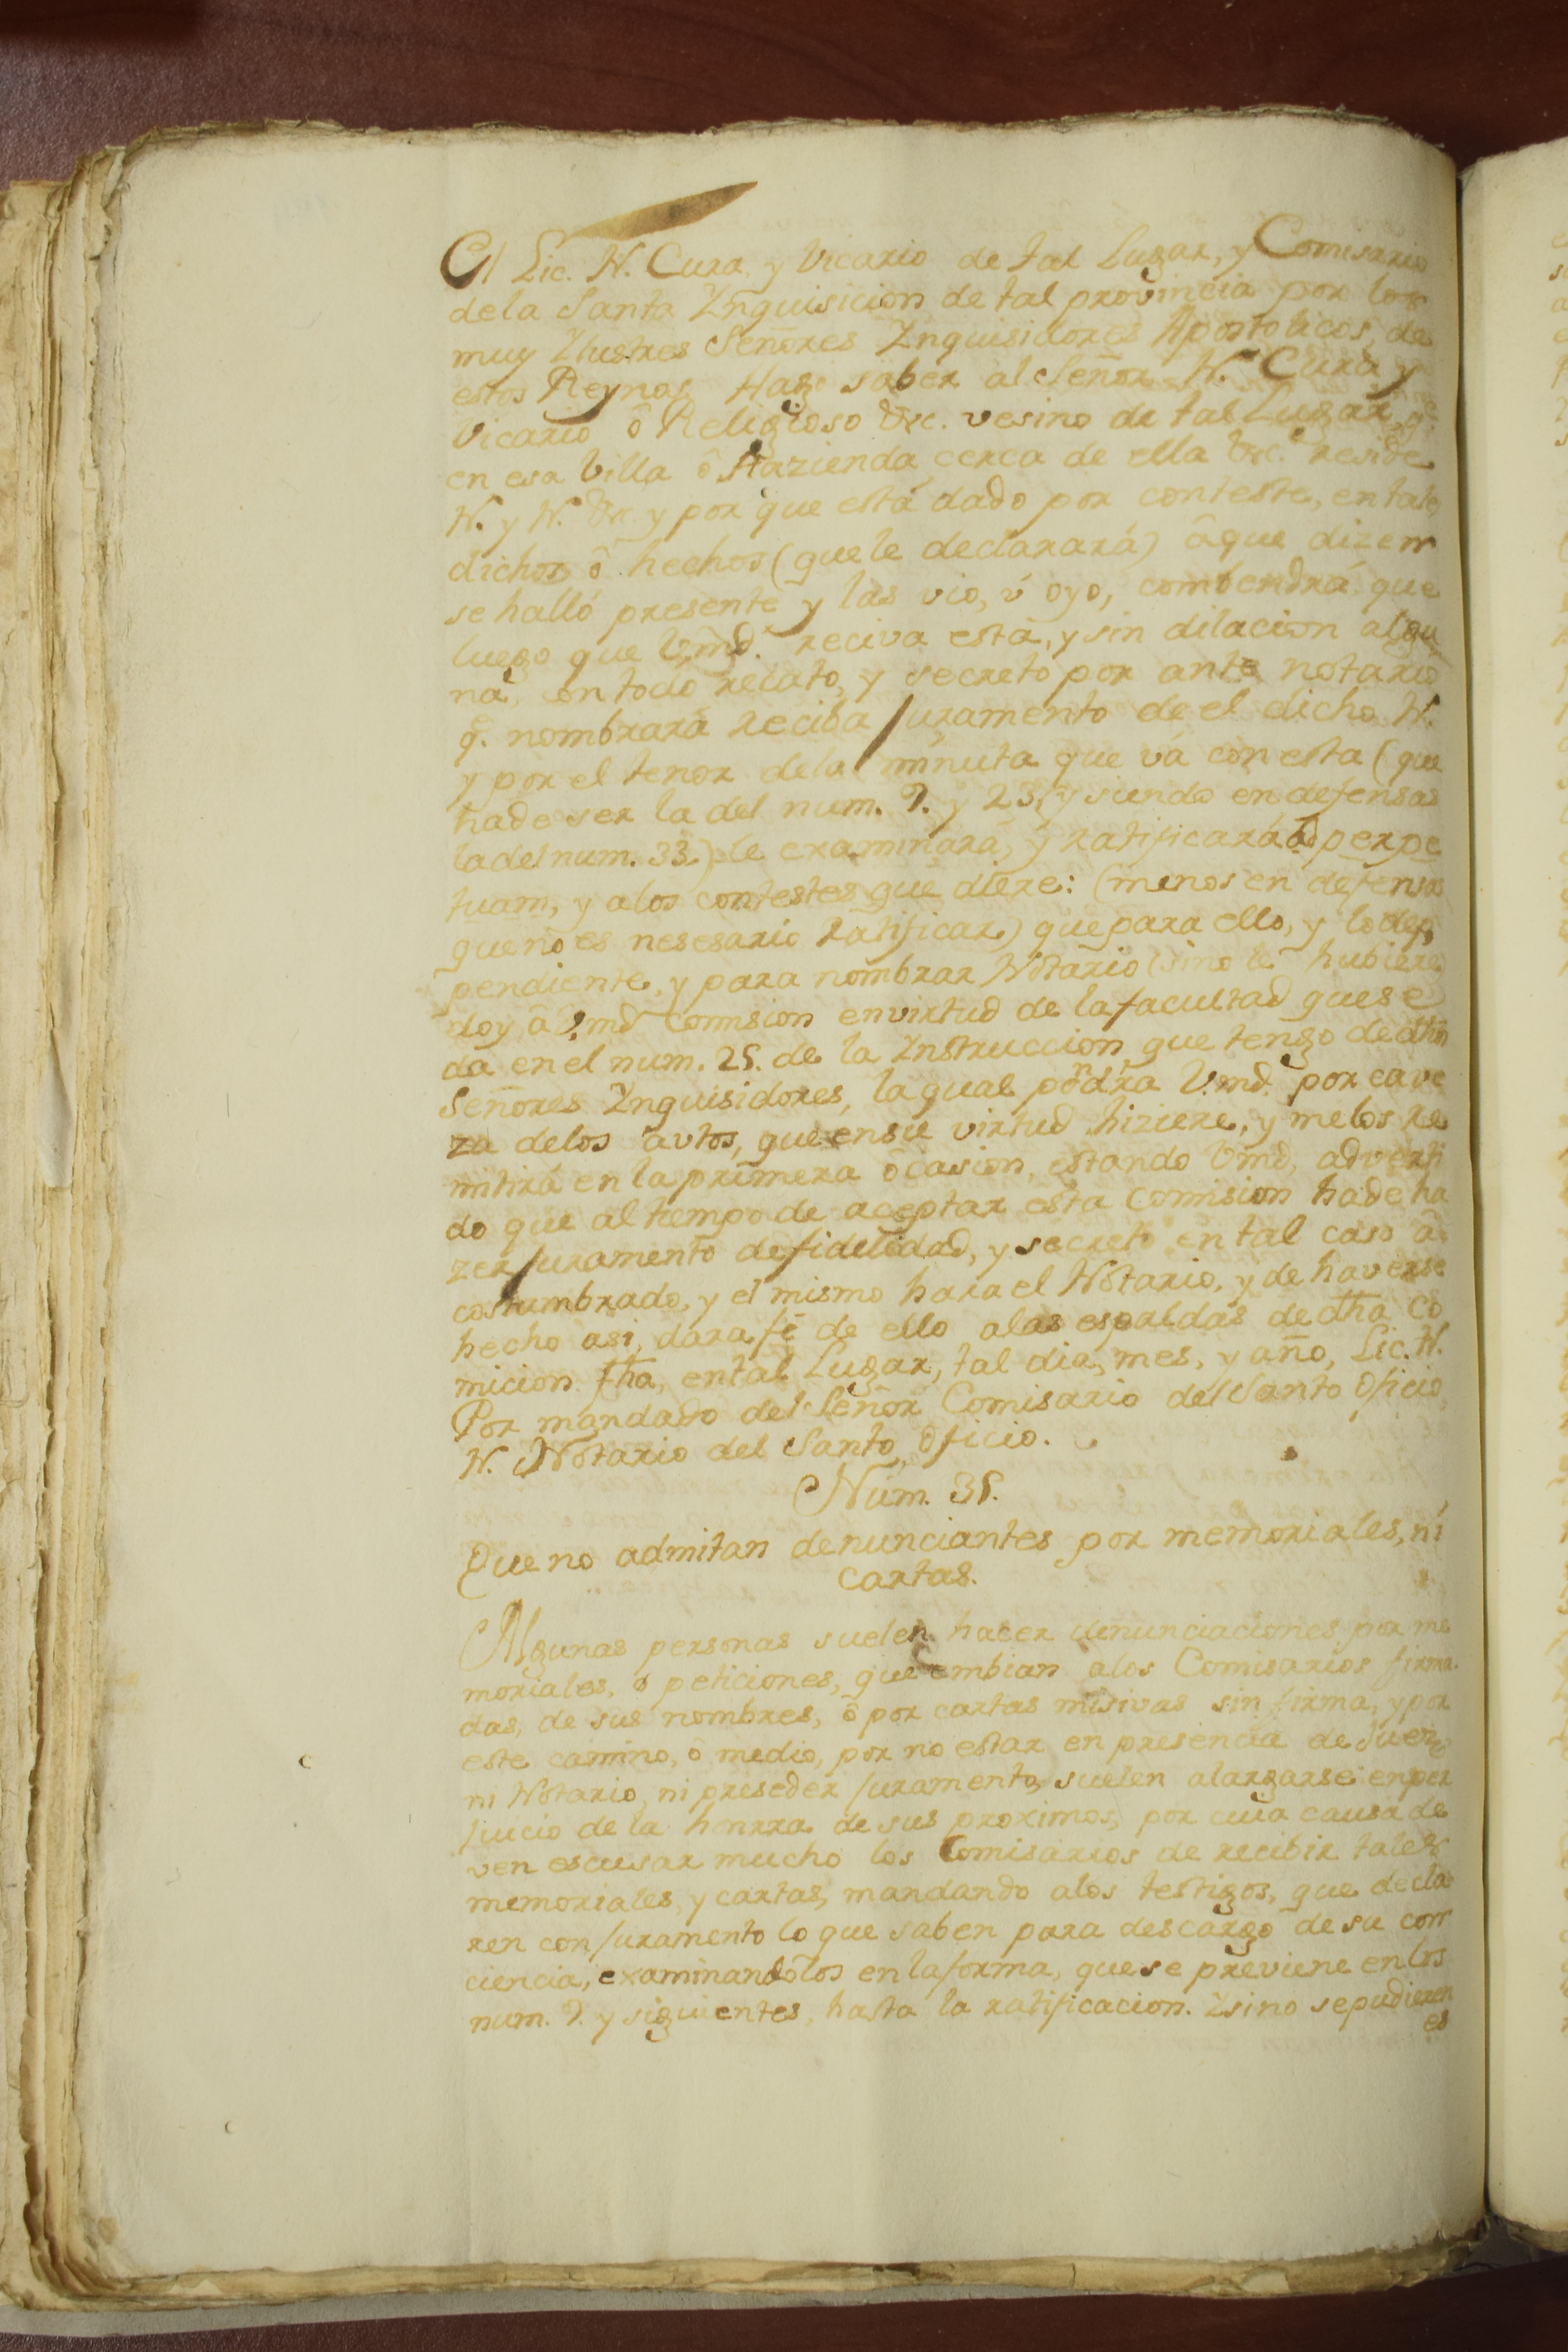 El Lic. N. Cura, y Vicario de tal Lugar, y Comisario
de la Santa Ynquisicion de tal provincia por los
muy Ylustres Señores Ynquisidores Apostolicos, de
estos Reynos, Hago saber al Señor N. Cura y
Vicario ô Religioso &c. vesino de tal Lugar, q.e
en esa Villa ô Hazienda cerca de ella &c. reside
N. y N. &c. y por que está dado por conteste, en tales
dichos ô hechos (que le declarará) âque dizen
se halló presente y las vio, ú oyo, combendrá que
luego que Vmd. reciva está, y sin dilacion algu
na, con todo recato, y secreto por ante notario
q.e nombrará reciba juramento de el dicho N.
y por el tenor dela minuta que vá con esta (que
hade ser la del num. 9. y 23, y siendo en defensas
la del num. 33.) le examinará, y ratificará ad perpe
tuam, y alos contestes que diere: (menos en defensas
que no es nesesario ratificar) que para ello, y lo de
pendiente, y para nombrar Notario (sino le hubiere)
doy â Vmd comision en virtud de la facultad que se
da en el num. 25. de la Ynstruccion que tengo de dhos
Señores Ynquisidores, la qual pondrá Vmd. por cave
za delos autos, que en su virtud hiziere, y melos re
mitirá en la primera ôcasion, estando Vmd, adverti
do que al tiempo de aceptar esta comision hade ha
zer juramento de fidelidad, y secreto en tal caso a
costumbrado, y el mismo hara el Notario, y de haverse
hecho asi, dara fé de ello alas espaldas de dha co
micion fha, en tal Lugar, tal dia, mes, y año, Lic. N.
Por mandado del Señor Comisario del Santo Oficio
N. Notario del Santo Oficio.
Núm. 35.
Que no admitan denunciantes por memoriales, ni
cartas.
Algunas personas suelen hacer denunciaciones por me
moriales, o peticiones, que embian alos Comisarios firma
das, de sus nombres, ô por cartas misivas sin firma, y por
este camino, ô medio, por no estar en presencia de Juez,
ni Notario, ni preseder juramento, suelen alargarse en per
juicio de la honrra de sus proximos, por cuia causa de
ven escusar mucho los Comisarios de recibir tales
memoriales, y cartas, mandando alos testigos, que decla
ren con juramento lo que saben para descargo de su con
ciencia, examinandolos en la forma, que se previene en los
num. 9. y siguientes, hasta la ratificacion. Y sino se pudieren
es